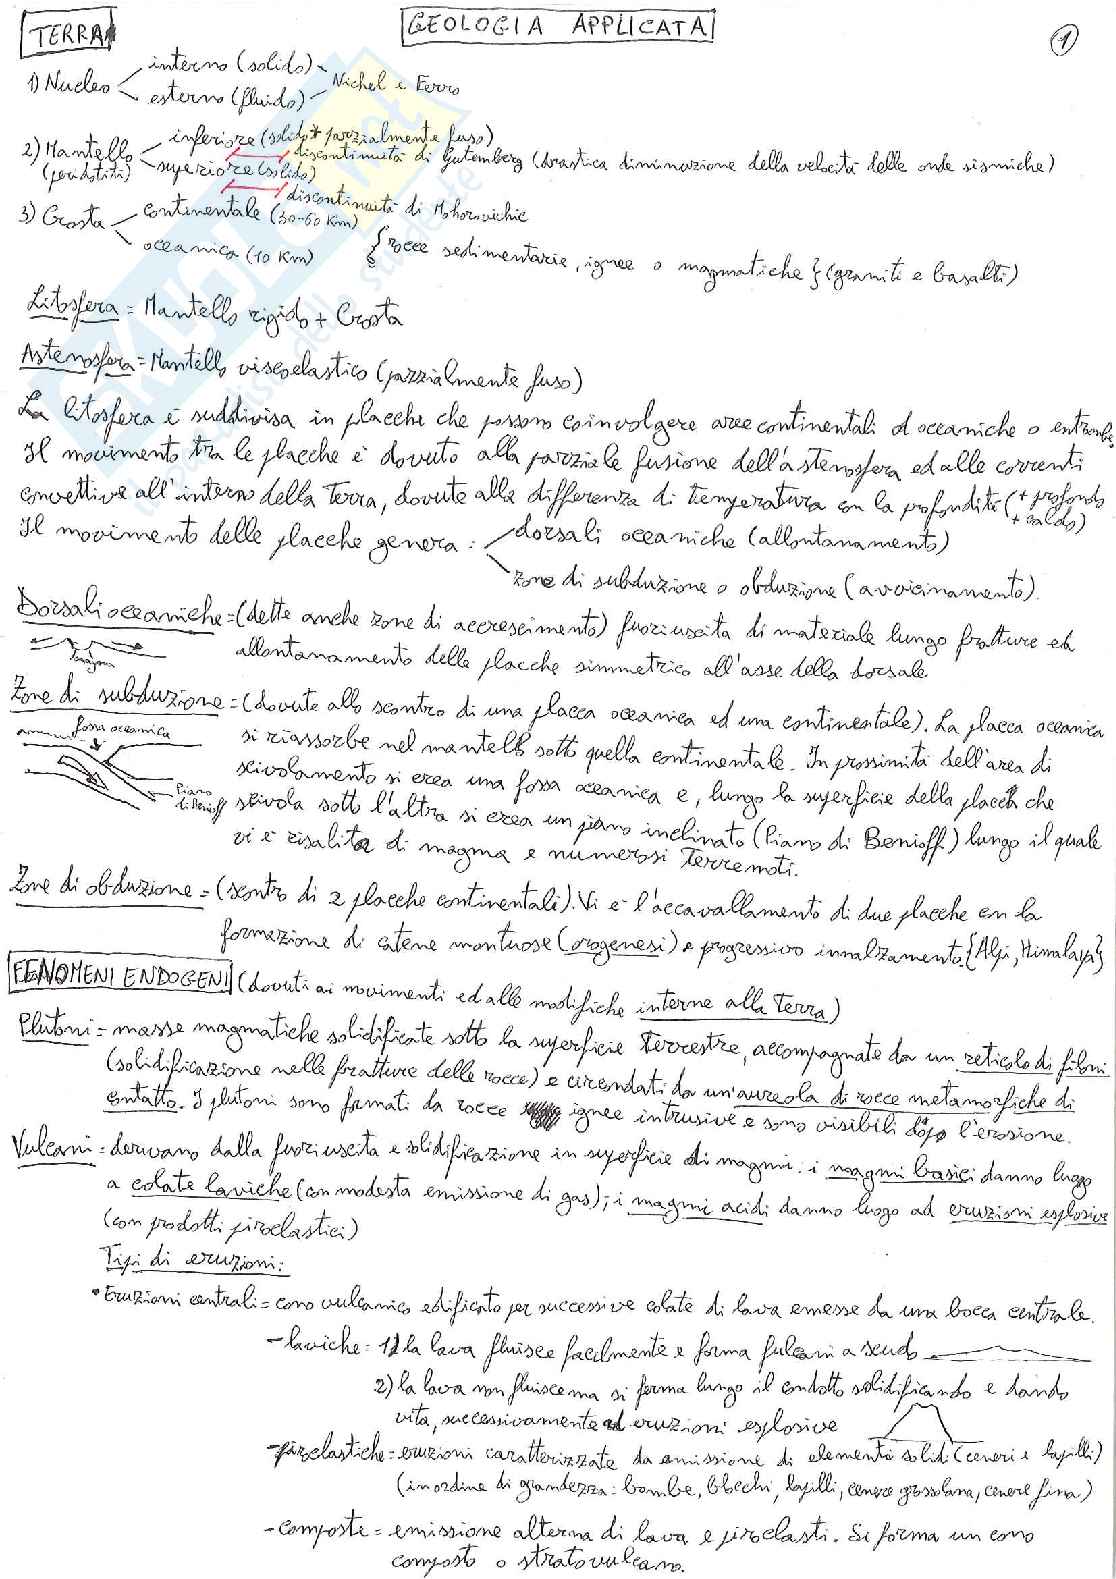 TERRA
GEOLOGIA APPLICATA
1
1) Nucleo
interno (solido)
esterno (fluido)
Nichel e Ferro
2) Mantello
(peridotiti)
inferiore (solido + parzialmente fuso)
discontinuità di Gutemberg (drastica diminuzione della velocità delle onde sismiche)
superiore (solido)
discontinuità di Mohorovichic
3) Crosta
continentale (30-60 Km)
oceanica (10 Km)
{rocce sedimentarie, ignee o magmatiche} (graniti e basalti)
Litosfera = Mantello rigido + Crosta
Astenosfera = Mantello viscoelastico (parzialmente fuso)
La litosfera è suddivisa in placche che possono coinvolgere aree continentali od oceaniche o entrambe.
Il movimento tra le placche è dovuto alla parziale fusione dell'astenosfera ed alle correnti
convettive all'interno della Terra, dovute alla differenza di temperatura con la profondità (+ profondo
+ caldo)
Il movimento delle placche genera:
dorsali oceaniche (allontanamento)
zone di subduzione o obduzione (avvicinamento).
Dorsali oceaniche = (dette anche zone di accrescimento) fuoriuscita di materiale lungo fratture ed
allontanamento delle placche simmetrico all'asse della dorsale.
Zone di subduzione = (dovute allo scontro di una placca oceanica ed una continentale). La placca oceanica
fossa oceanica
si riassorbe nel mantello sotto quella continentale. In prossimità dell'area di
scivolamento si crea una fossa oceanica e, lungo la superficie della placca che
Piano
di Benioff
scivola sotto l'altra si crea un piano inclinato (Piano di Benioff) lungo il quale
vi è risalita di magma e numerosi terremoti.
Zone di obduzione = (scontro di 2 placche continentali). Vi è l'accavallamento di due placche con la
formazione di catene montuose (orogenesi) e progressivo innalzamento. {Alpi, Himalaya}
FENOMENI ENDOGENI (dovuti ai movimenti ed alle modifiche interne alla Terra)
Plutoni = masse magmatiche solidificate sotto la superficie terrestre, accompagnate da un reticolo di filoni
(solidificazione nelle fratture delle rocce) e circondati da un'aureola di rocce metamorfiche di
contatto. I plutoni sono formati da rocce ignee intrusive e sono visibili dopo l'erosione.
Vulcani = derivano dalla fuoriuscita e solidificazione in superficie di magmi: i magmi basici danno luogo
a colate laviche (con modesta emissione di gas); i magmi acidi danno luogo ad eruzioni esplosive
(con prodotti piroclastici)
Tipi di eruzioni:
• Eruzioni centrali = cono vulcanico edificato per successive colate di lava emesse da una bocca centrale.
- laviche = 1) la lava fluisce facilmente e forma vulcani a scudo
2) la lava non fluisce ma si ferma lungo il condotto solidificando e dando
vita, successivamente ad eruzioni esplosive
- piroclastiche = eruzioni caratterizzate da emissione di elementi solidi (ceneri e lapilli)
(in ordine di grandezza: bombe, blocchi, lapilli, cenere grossolana, cenere fina)
- composte = emissione alterna di lava e piroclasti. Si forma un cono
composto o stratovulcano.